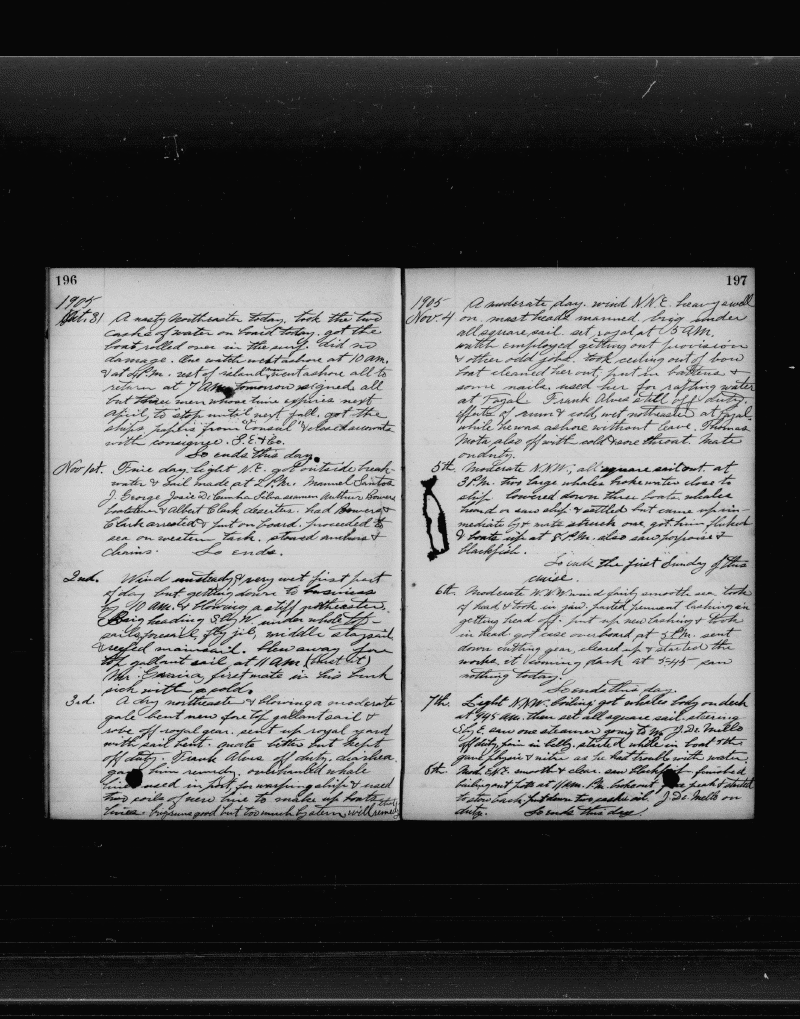 196
1905
Oct. 31 A nasty Northeaster today, took the two
casks of water on board today, got the
boat rolled over in the surf, did no
damage. ashore at 10 am.
& at of island went ashore all to
return at 7 AM tomorrow signed all
but three men whose time expires next
April, to stop until next fall, got the
ships papers from Consul &
with consignee. S.E. & Co.
So ends this day.
Nov 1st. Fine day, light N.E. got outside break-
water & sail made at 2 P.M. Manuel Santos
J. George José D. Cunha Silva seamen Arthur Bowers
boatsteer & Albert Clark deserters. had Bowers &
Clark arrested & put on board. proceeded to
sea on western tack. stowed anchors &
chains. So ends.
2nd. Wind unsteady & very wet first part
of day but getting down to business
by 10 AM. & blowing a stiff northeaster.
Brig heading S by W. under whole top-
sails, foresail, fly jib, middle staysail
& reefed mainsail. blew away fore
top gallant sail, at 11 AM (burst it)
Mr. first mate in his bunk
sick with a cold.
3rd. A dry northeaster & blowing a moderate
gale bent new fore top gallant sail &
rove off royal gear. sent up royal yard
with sail bent. mate better but kept
off duty. Frank Alves off duty, diarrhea.
gave him remedy. overhauled whale
lines used in port, for warping ship & used
two coils of new line to make up boats
lines. brig runs good but too much by stern, will remedy
197
1905
Nov. 4 A moderate day. wind N.N.E. heavy swell
on. mast heads manned, brig under
all square sail set royal at 5 AM.
watch employed getting out provision
& other odd jobs. took ceiling out of bow
boat cleaned her out, put in battens &
some nails. used her for rafting water
at Fayal. Frank Alves still off duty,
effects of rum & cold, wet northeaster at Fayal
while he was ashore without leave. Thomas
Mota also off with cold & sore throat. Mate
on duty.
5th. Moderate NNW; all square sail out. at
3 P.M. two large whales broke water close to
ship lowered down three boats whales
heard or saw ship & settled but came up im-
mediately & mate struck one got him fluked
& boats up at 8 P.M. also saw porpoise &
blackfish.
So ends the first Sunday of this
cruise.
6th. Moderate N.N.W. wind fairly smooth sea. took
of head & took in jaw. parted pennant lashing in
getting head off. put up new lashing & took
in head got case overboard at 3 P.M. sent
down cutting gear, cleared up & started the
works. it coming dark at 5-45 saw
nothing today.
So ends this day.
7th. Light NNW. boiling got whales body on deck
at 9 45 AM. then set all square sail. steering
S by E. saw one steamer going to W. J. De Mello
off duty, pain in belly. started while in boat 5th
gave physic & nitre as he had trouble with water.
8th. Mod. E.N.E. smooth & clear. saw blackfish finished
boiling out pots at 11 AM. P.M. broke out fore peak & started
to stow back, put down two casks oil. J. De Mello on
duty. So ends this day.